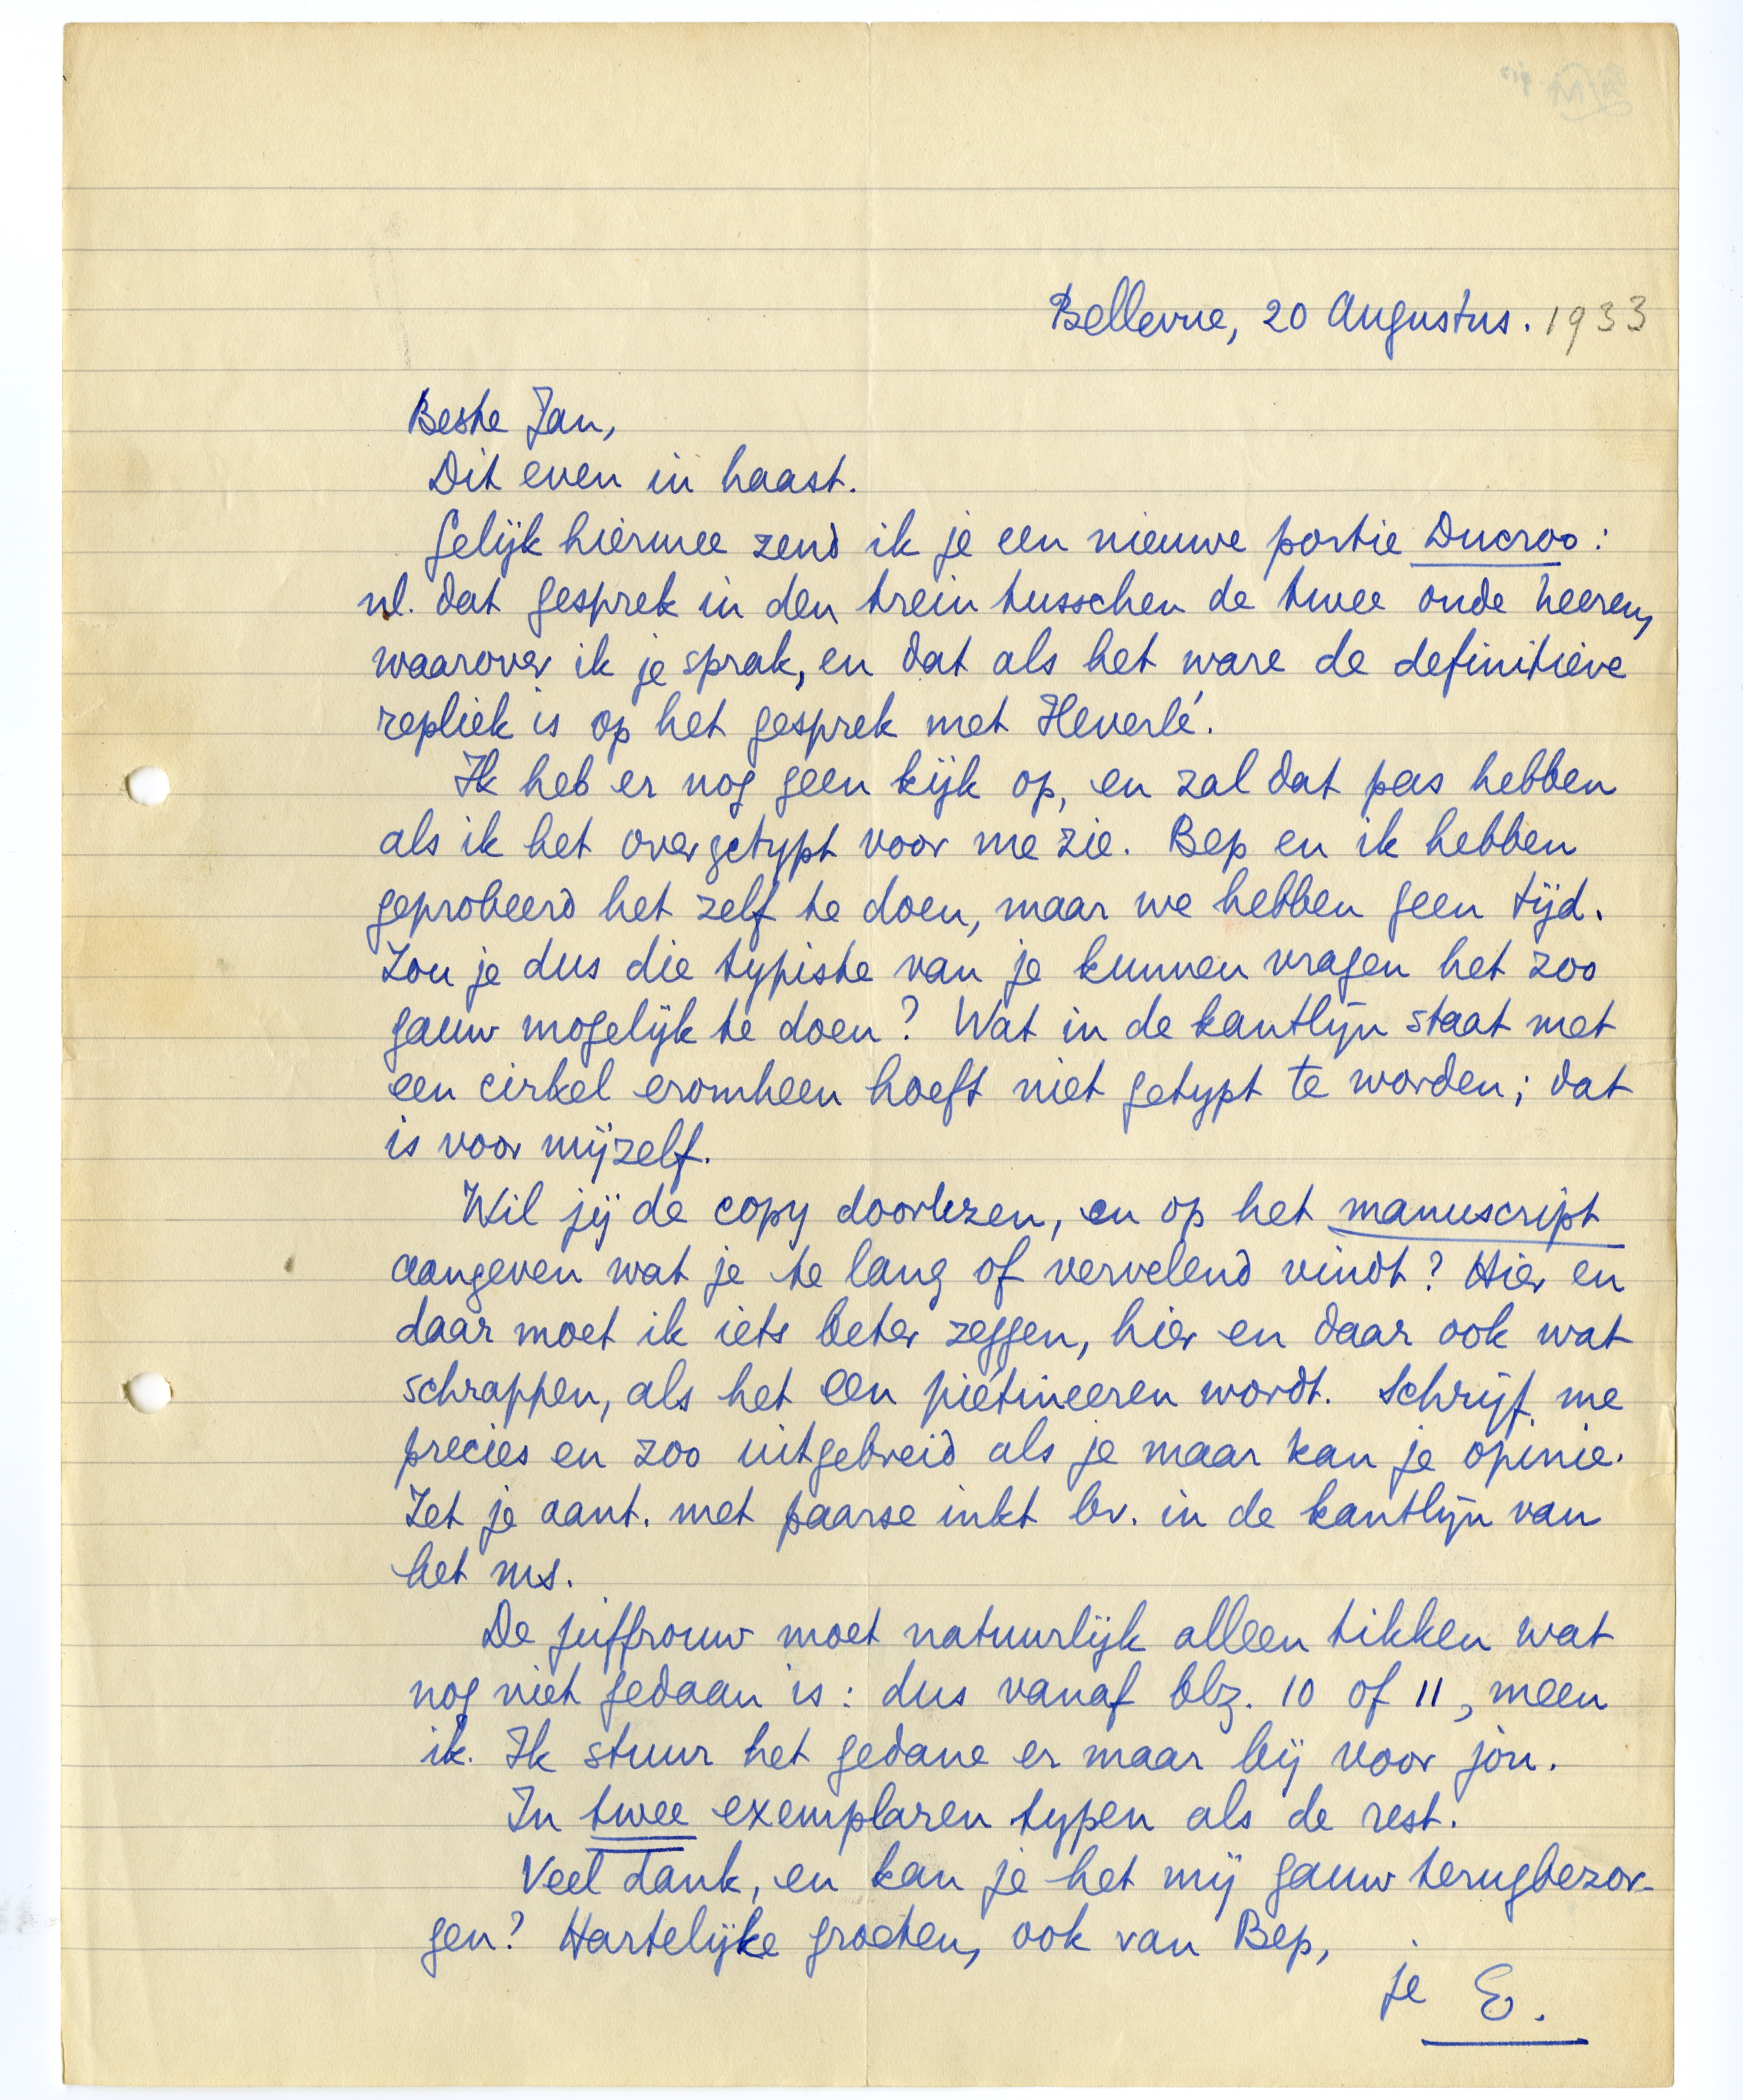 Bellevue, 20 Augustus. 1933
Beste Jan,
Dit even in haast.
Gelijk hiermee zend ik je een nieuwe portie Ducroo:
nl. dat gesprek in den trein tusschen de twee oude heeren,
waarover ik je sprak, en dat als het ware de definitieve
repliek is op het gesprek met Heverlé.
Ik heb er nog geen kijk op, en zal dat pas hebben
als ik het overgetypt voor me zie. Bep en ik hebben
geprobeerd het zelf te doen, maar we hebben geen tijd.
Zou je dus die typiste van je kunnen vragen het zoo
gauw mogelijk te doen? Wat in de kantlijn staat met
een cirkel eromheen hoeft niet getypt te worden; dat
is voor mijzelf.
Wil jij de copy doorlezen, en op het manuscript
aangeven wat je te lang of vervelend vindt? Hier en
daar moet ik iets beter zeggen, hier en daar ook wat
schrappen, als het een piétineeren wordt. Schrijf me
precies en zoo uitgebreid als je maar kan je opinie.
Zet je aant. met paarse inkt bv. in de kantlijn van
het ms.
De juffrouw moet natuurlijk alleen tikken wat
nog niet gedaan is: dus vanaf blz. 10 of 11, meen
ik. Ik stuur het gedane er maar bij voor jou.
In twee exemplaren typen als de rest.
Veel dank, en kan je het mij gauw terugbezor-
gen? Hartelijke groeten, ook van Bep,
je E.